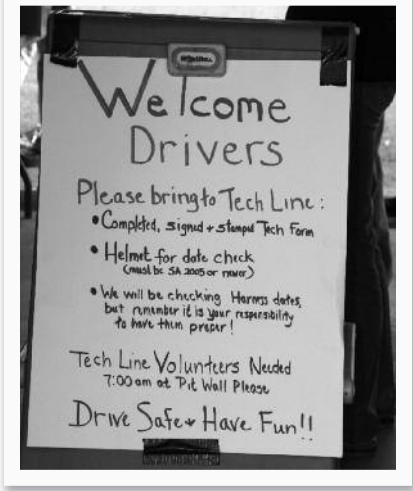 Welcome
Drivers
Please bring to Tech Line:
• Completed, signed + stamped Tech Form
• Helmet for date check
(must be SA 2005 or newer)
• We will be checking Harness dates,
but remember it is your responsibility
to have them proper!
Tech Line Volunteers Needed
7:00am at Pit Wall Please
Drive Safe + Have Fun!!